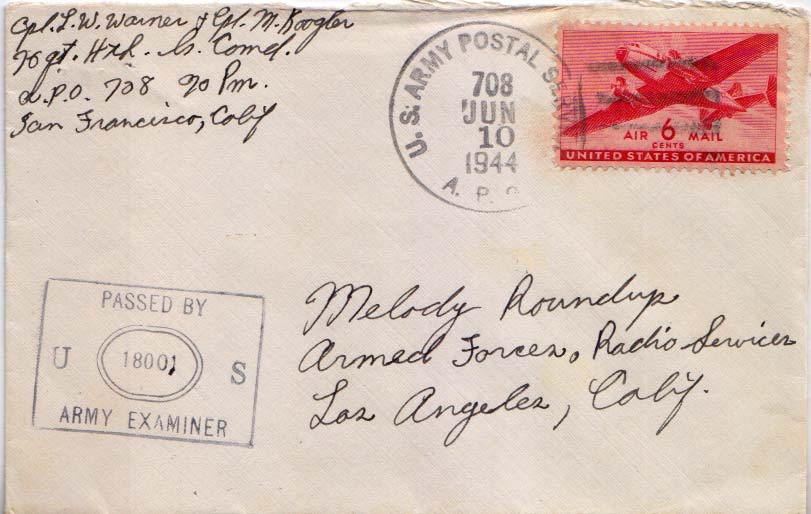 Cpl. L. W. Warner & Cpl. M. Koogler
Hqd. Comd.
A.P.O. 708 % Pm.
San Francisco, Calif
U. S. ARMY POSTAL
708
JUN
10
1944
A. P. O
AIR 6 MAIL
CENTS
UNITED STATES OF AMERICA
PASSED BY
U 18001 S
ARMY EXAMINER
Melody Roundup
Armed Forces, Radio Services
Los Angeles, Calif.